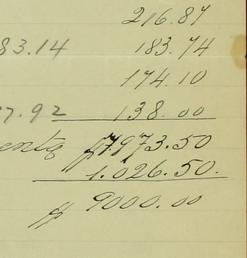 216.87
83.14 183.74
174.10
7.92 138.00
ents $7.973.50
1.026.50.
$ 9000.00